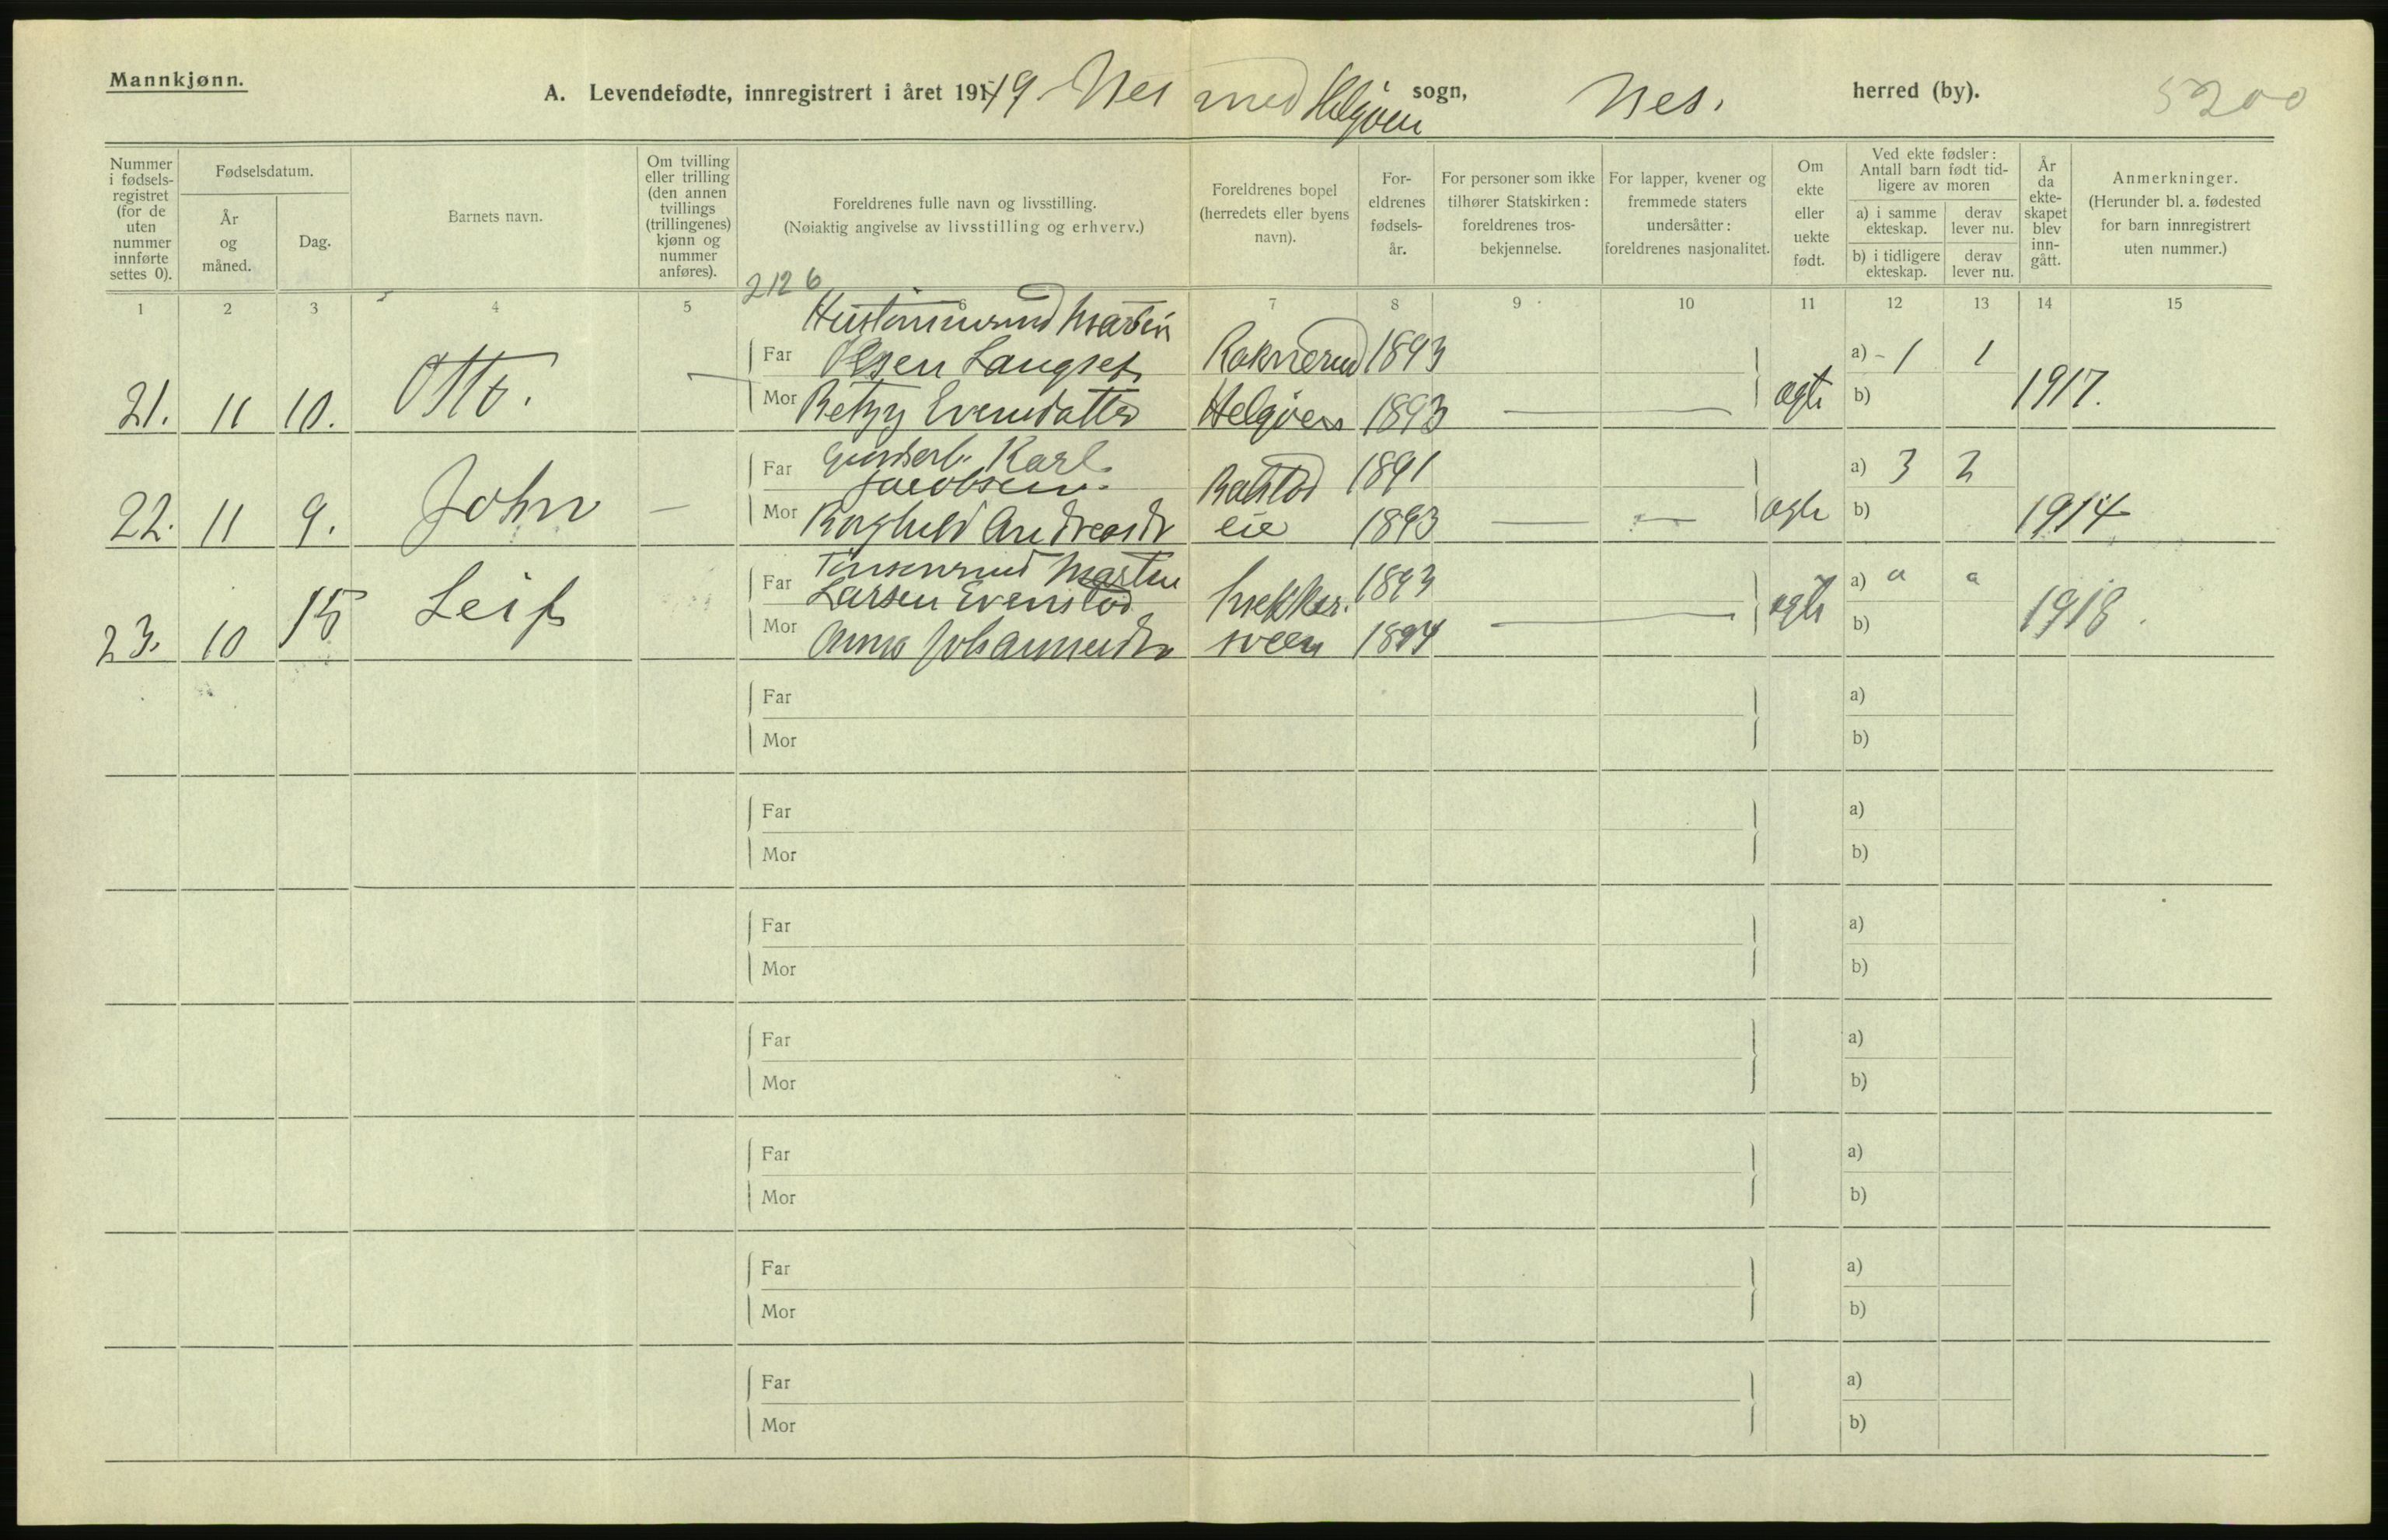 Mannkjønn.
A. Levendefødte, innregistrert i året 1919. Nes med Helgøen sogn, Nes. herred (by). 5200
Nummer i fødsels-registret (for de uten nummer innførte settes 0).
Fødselsdatum.
År og måned.
Dag.
Barnets navn.
Om tvilling eller trilling (den annen tvillings (trillingenes) kjønn og nummer anføres).
Foreldrenes fulle navn og livsstilling.
(Nøiaktig angivelse av livsstilling og erhverv.)
Foreldrenes bopel (herredets eller byens navn).
For-eldrenes fødsels-år.
For personer som ikke tilhører Statskirken: foreldrenes tros-bekjennelse.
For lapper, kvener og fremmede staters undersåtter: foreldrenes nasjonalitet.
Om ekte eller uekte født.
Ved ekte fødsler: Antall barn født tid-ligere av moren
a) i samme ekteskap.
derav lever nu.
b) i tidligere ekteskap.
derav lever nu.
År da ekte-skapet blev inn-gått.
Anmerkninger.
(Herunder bl. a. fødested for barn innregistrert uten nummer.)
2126
1 2 3 4 5 6 7 8 9 10 11 12 13 14 15
Martin
Far Olsen Langset 1893 a) - 1 1
21. 11 10. Otto. — Mor Betzy Evensdatter Helgøen 1893 — ægte b) 1917.
Far Karl 1891 a) 3 2
Jacobsen.
22. 11 9. John — Mor Borghild Andreasdr eie 1893 — — ægte b) 1914
Martin
Far Larsen Evenstad 1893 a) 0 0
23. 10 15 Leif Mor Anna Johannesdr sveen 1894 — ægte b) 1918.
Far a)
Mor b)
Far a)
Mor b)
Far a)
Mor b)
Far a)
Mor b)
Far a)
Mor b)
Far a)
Mor b)
Far a)
Mor b)